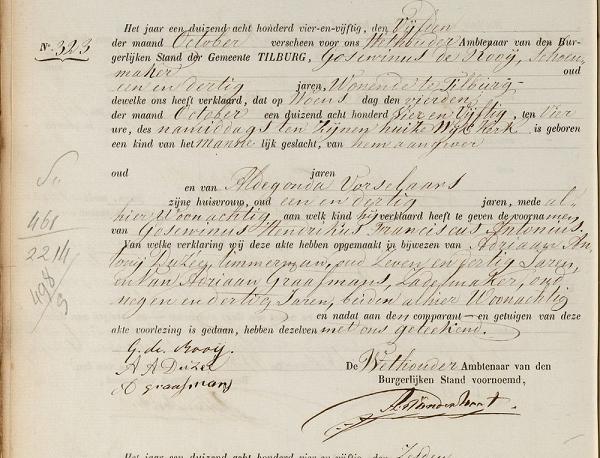 Het jaar een duizend acht honderd vier-en-vijftig, den Vijfden
N.º 323
der maand October verscheen voor ons Wethouder Ambtenaar van den Bur-
gerlijken Stand der Gemeente TILBURG, Gosewinus de Rooij, Schoen
maker oud
een en dertig jaren, Wonende te Tilburg
dewelke ons heeft verklaard, dat op Woens dag den vierden
der maand October een duizend acht honderd vier en Vijftig, ten Vier
ure, des namiddags ten zijnen huize Wijk Kerk is geboren
een kind van het Manne lijk geslacht, van hem aangever
oud jaren
en van Aldegonda Vorselaars
zijne huisvrouw, oud een en dertig jaren, mede al-
hier Woonachtig, aan welk kind hij verklaard heeft te geven de voornamen
van Gosewinus Hendrikus Franciscus Antonius.
Van welke verklaring wij deze akte hebben opgemaakt in bijwezen van Adriaan An-
tonij Duzee, timmerman, oud Zeven en dertig Jaren,
en van Adriaan Graafmans, Zadelmaker, oud
negen en dertig Jaren, beiden alhier Woonachtig
en nadat aan den comparant en getuigen van deze
akte voorlezing is gedaan, hebben dezelven met ons geteekend.
G. de Rooij.
A A Duzee
A graafmans
De Wethouder Ambtenaar van den
Burgerlijken Stand voornoemd,
461
2214
498
9
Het jaar een duizend acht honderd vier-en-vijftig, den Zesden